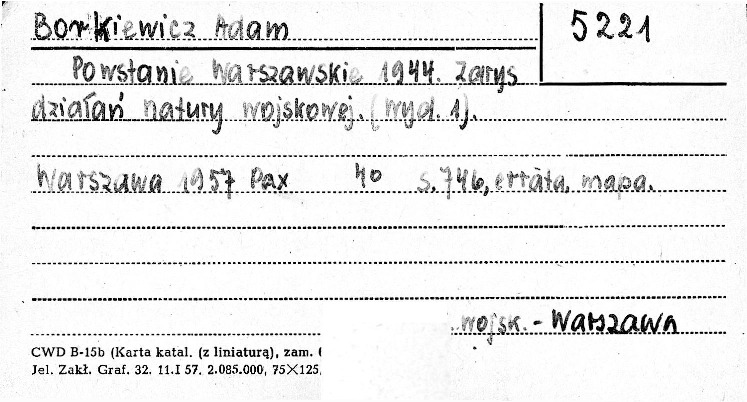 Borkiewicz Adam
5221
Powstanie Warszawskie 1944. Zarys
działań natury wojskowej. (wyd. 1).
Warszawa 1957 Pax 4o s. 746, errata, mapa.
wojsk. - Warszawa
CWD B-15b (Karta katal. (z liniaturą), zam.
Jel. Zakł. Graf. 32. 11.I 57. 2.085.000, 75×125,